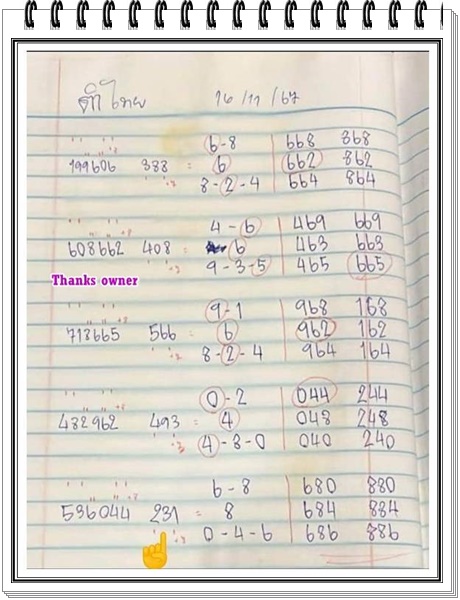 ติ๋ไทย 16/11/67
6-8 668 868
199606 388 = 6 662 862
8-2-4 664 864
4-6 469 669
608662 408 = 6 463 663
9-3-5 465 665
Thanks owner
9-1 968 168
713665 566 = 6 962 162
8-2-4 964 164
0-2 044 244
432962 493 = 4 048 248
4-8-0 040 240
6-8 680 880
536044 231 = 8 684 884
0-4-6 686 886